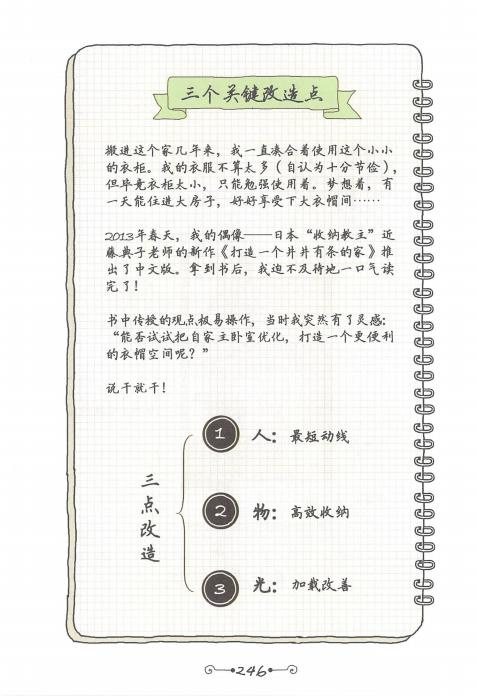 三个关键改造点
搬进这个家几年来，我一直凑合着使用这个小小
的衣柜。我的衣服不算太多（自认为十分节俭），
但毕竟衣柜太小，只能勉强使用着。梦想着，有
一天能住进大房子，好好享受下大衣帽间……
2013年春天，我的偶像——日本“收纳教主”近
藤典子老师的新作《打造一个井井有条的家》推
出了中文版。拿到书后，我迫不及待地一口气读
完了！
书中传授的观点极易操作，当时我突然有了灵感：
“能否试试把自家主卧室优化，打造一个更便利
的衣帽空间呢？”
说干就干！
三点改造
1 人：最短动线
2 物：高效收纳
3 光：加载改善
246